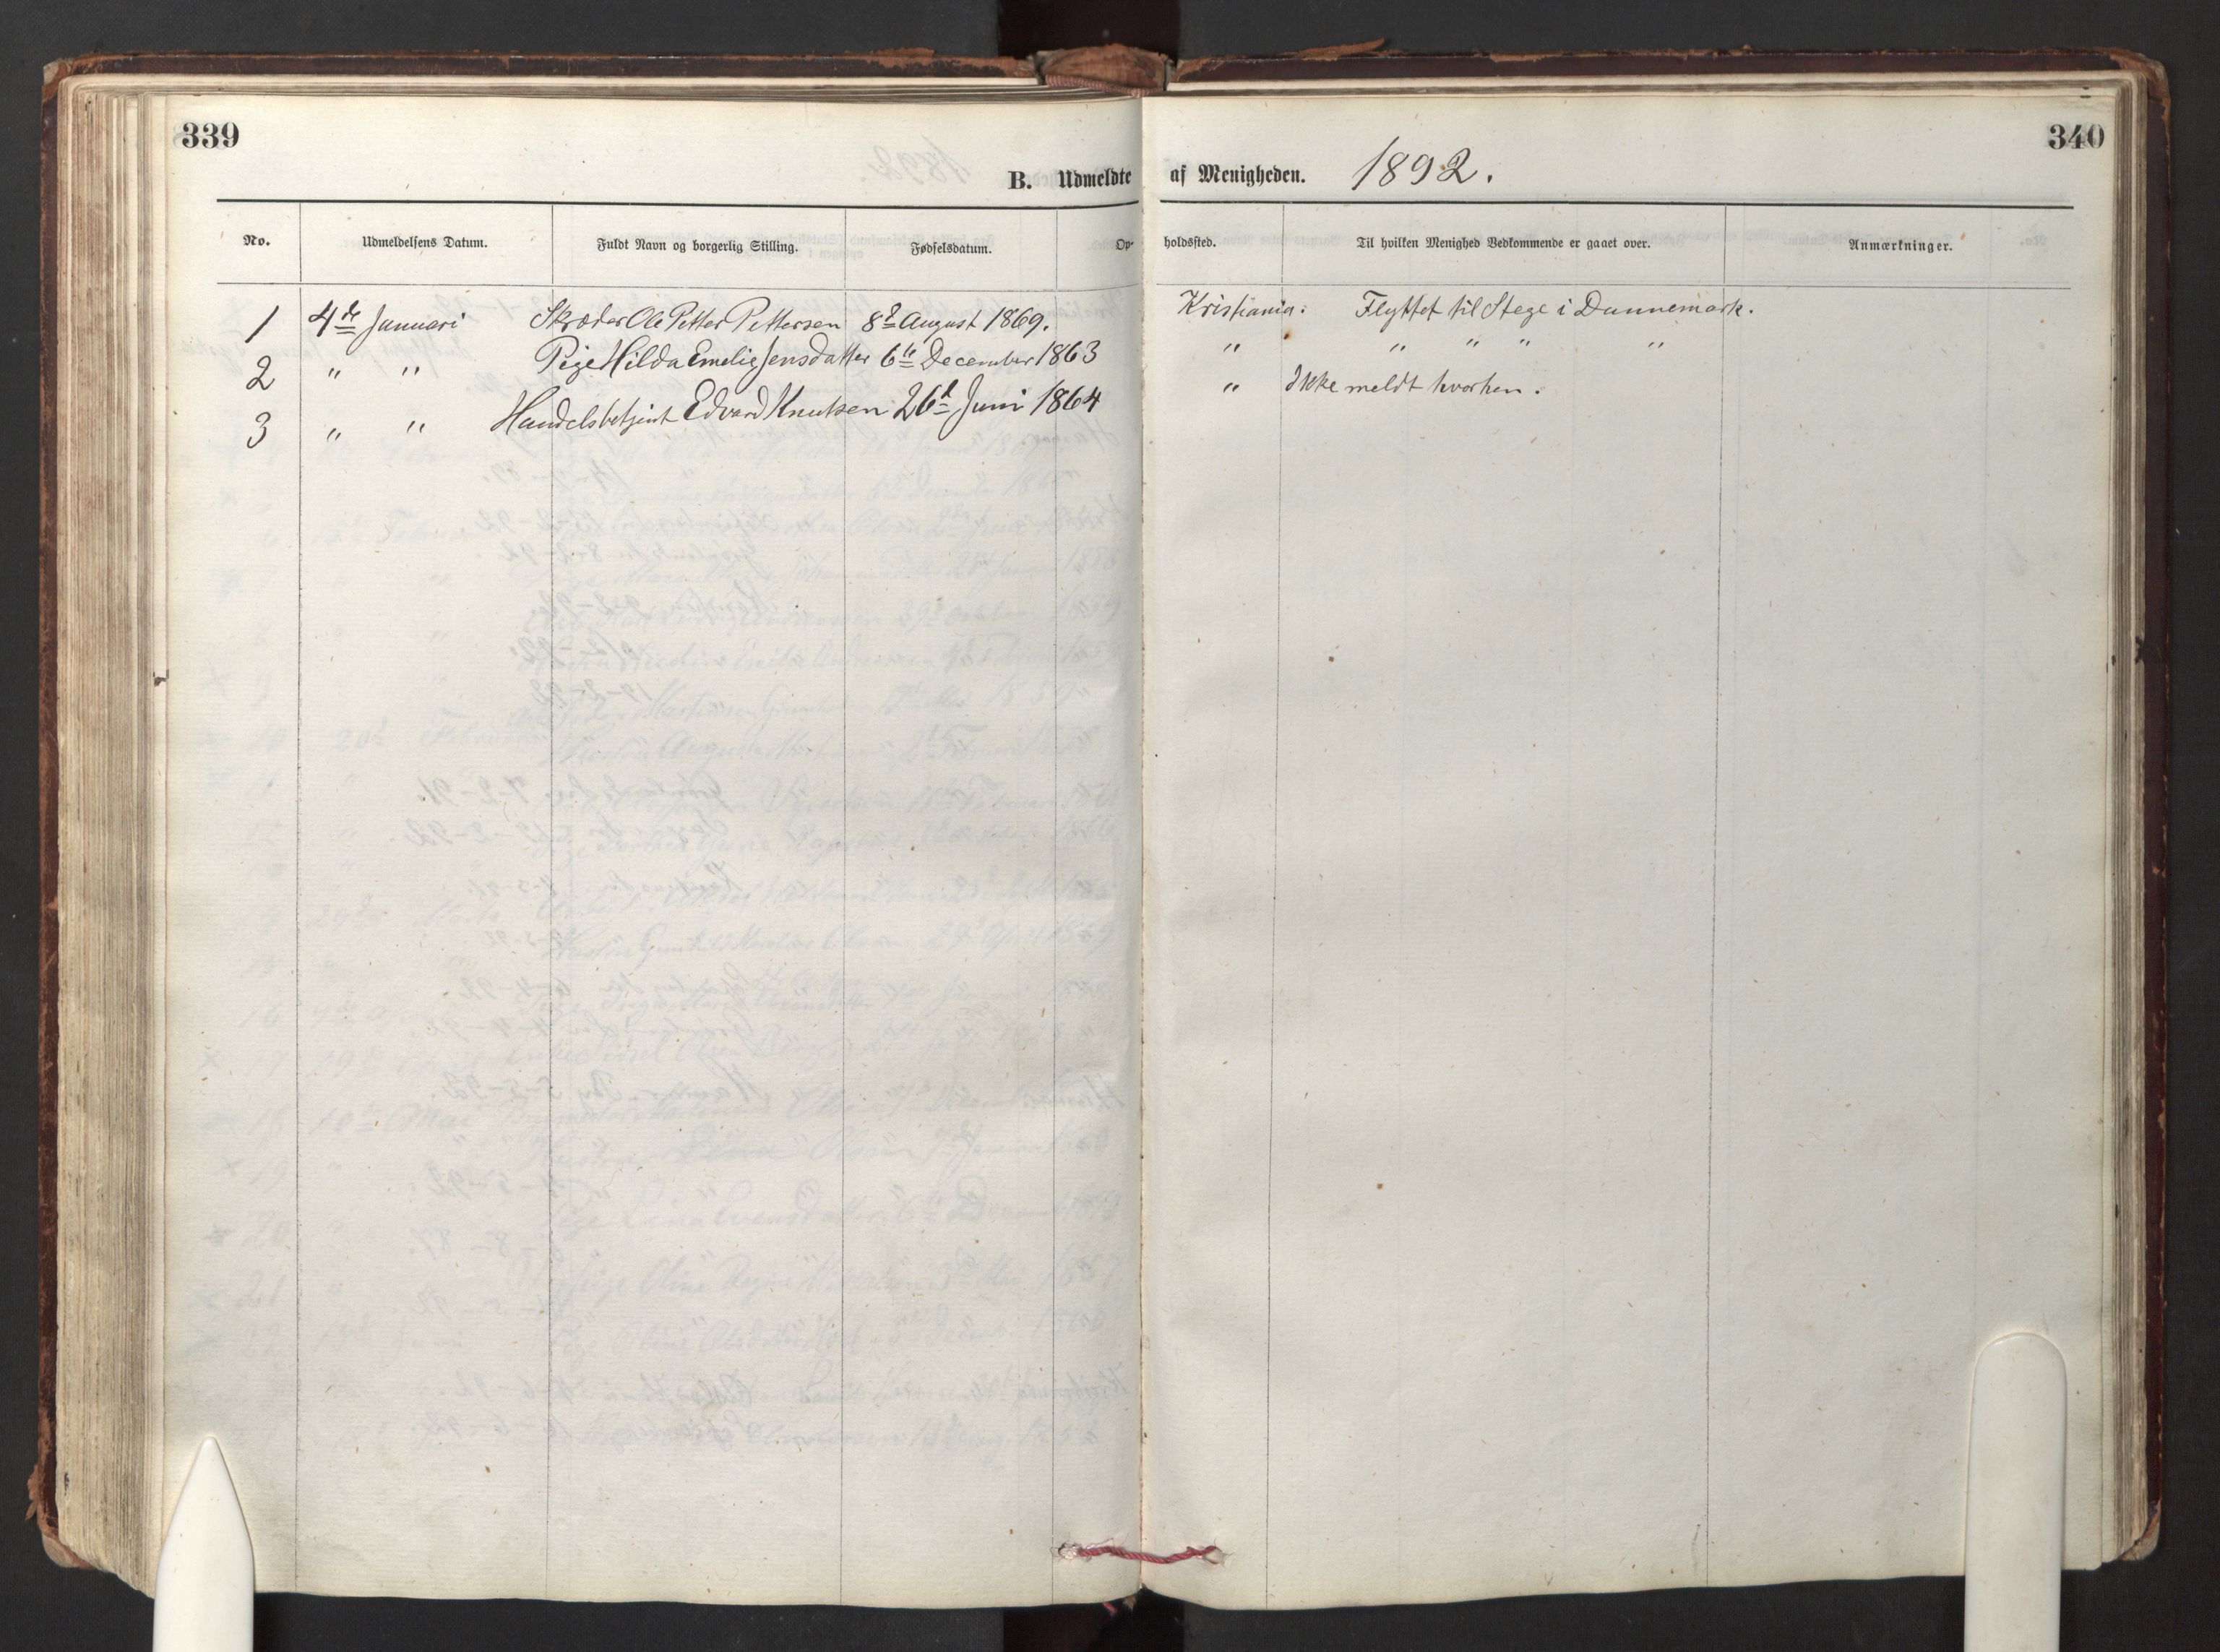 339
340
B. Udmeldte af Menigheden. 1892.
No. Udmeldelsens Datum. Fuldt Navn og borgerlig Stilling. Fødselsdatum. Op- holdssted. Til hvilken Menighed Vedkommende er gaaet over. Anmærkninger.
1 4de Januari Skræder Ole Petter Pettersen 8d August 1869. Kristiania. Flyttet til Stege i Dannemark.
2 " " Pige Hilda Emelie Jensdatter 6te December 1863 " " " " "
3 " " Handelsbetjent Edvard Knutsen 26d Juni 1864 " Ikke meldt hvorhen.